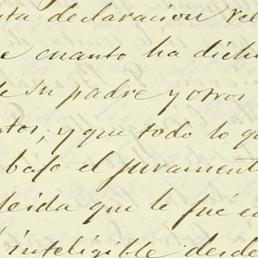 ta declaracion rel
e cuanto ha dich
e su padre y otros
tos, y que todo lo q
bajo el juramento
leida que le fué e
inteligible desde